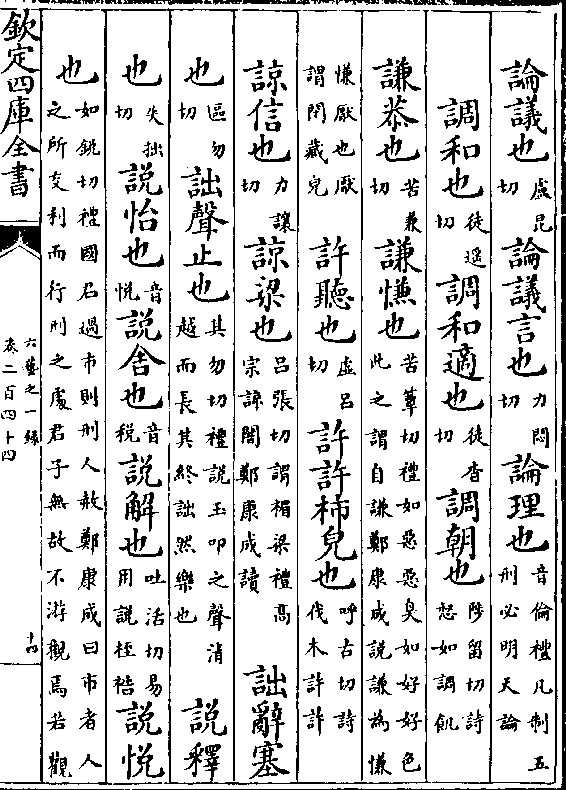 論議也盧昆切論議言也力悶切論理也音倫禮凡制五刑必明天論
調和也徒遥切調和適也徒沓切調朝也陟留切詩惄如調飢
謙恭也苦兼切謙慊也苦簟切禮如惡惡臭如好好色此之謂自謙鄭康成説謙為慊
慊厭也厭謂閉藏皃許聽也虛呂切許許柿皃也呼古切詩伐木許許
諒信也力讓切諒梁也呂張切謂楣梁禮髙宗諒闇鄭康成讀詘辭塞
也區勿切詘聲止也其勿切禮説玉叩之聲清越而長其終詘然樂也説釋
也失拙切説怡也音悅説舍也音稅説解也吐活切易用説桎梏説悦
也如銳切禮國君過市則刑人赦鄭康成曰市者人之所交利而行刑之處君子無故不游觀焉若觀
欽定四庫全書
六藝之一録
卷二百四十四
十四